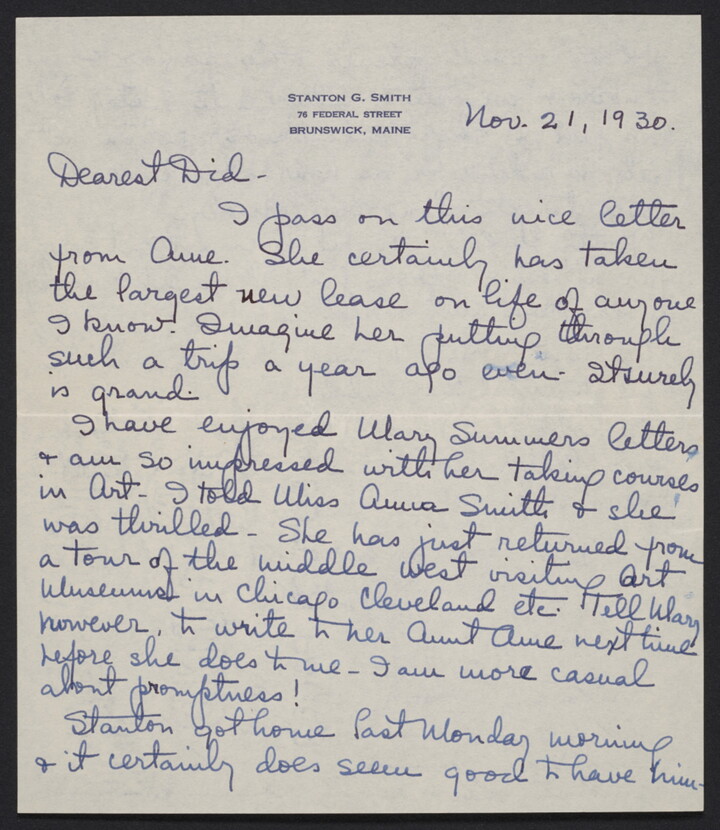 STANTON G. SMITH
76 FEDERAL STREET
BRUNSWICK, MAINE
Nov. 21, 1930.
Dearest Did -
I pass on this nice letter
from Ame. She certainly has taken
the largest new lease on life of anyone
I know. Imagine her putting through
such a trip a year ago even. It surely
is grand.
I have enjoyed Mary Summers letters
& am so impressed with her taking courses
in Art - I told Miss Anna Smith & she
was thrilled - She has just returned from
a tour of the middle west visiting Art
Museums in Chicago Cleveland etc. Tell Mary
however, to write to her Aunt Ame next time
before she does to me - I am more casual
about promptness!
Stanton got home last Monday morning
& it certainly does seem good to have him -